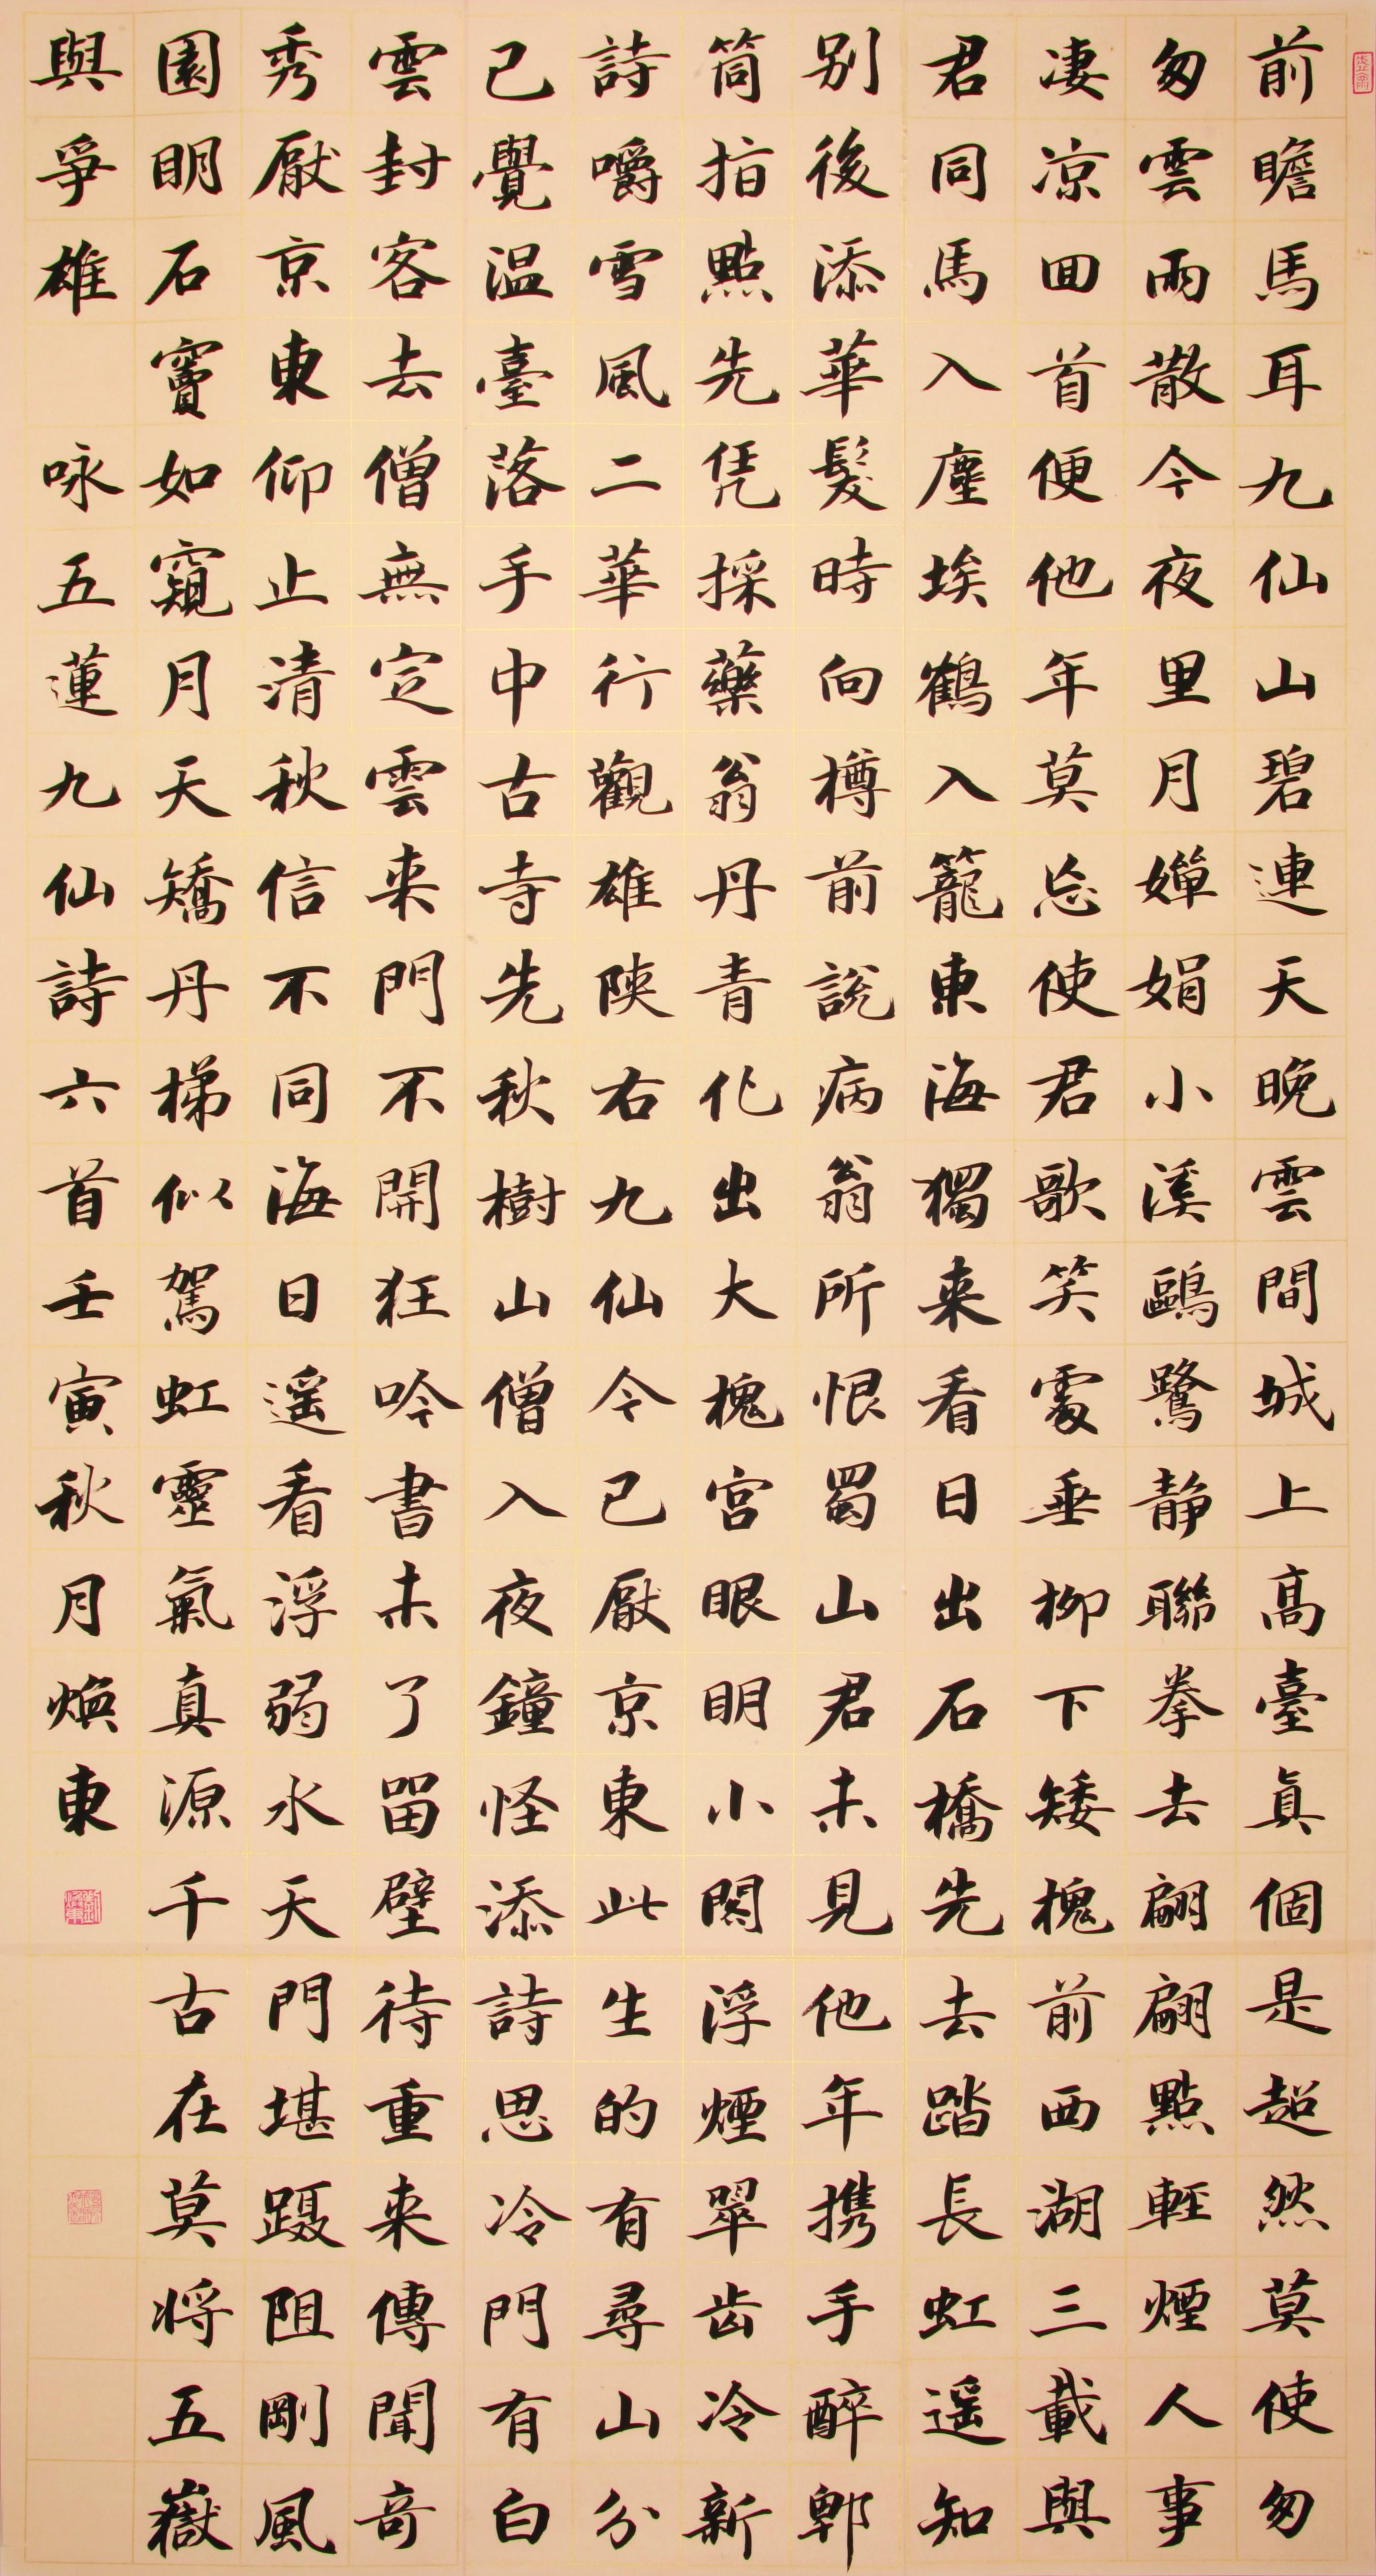 前瞻馬耳九仙山碧連天晚雲間城上高臺真個是超然莫使匆
匆雲雨散今夜里月嬋娟小溪鷗鷺静聯拳去翩翩點輕煙人事
凄凉回首便他年莫忘使君歌笑處垂柳下矮槐前西湖三載與
君同馬入塵埃鶴入籠東海獨来看日出石橋先去踏長虹遥知
别後添華髮時向樽前說病翁所恨蜀山君未見他年携手醉郫
筒指點先凭採藥翁丹青化出大槐宫眼明小閣浮煙翠齿冷新
詩嚼雪風二華行觀雄陝右九仙今已厭京東此生的有尋山分
已覺温臺落手中古寺先秋樹山僧入夜鐘怪添詩思冷門有白
雲封客去僧無定雲来門不開狂吟書未了留壁待重来傳聞奇
秀厭京東仰止清秋信不同海日遥看浮弱水天門堪蹑阻剛風
園明石竇如窺月天矯丹梯似駕虹靈氣真源千古在莫将五嶽
與爭雄 咏五蓮九仙詩六首壬寅秋月焕東